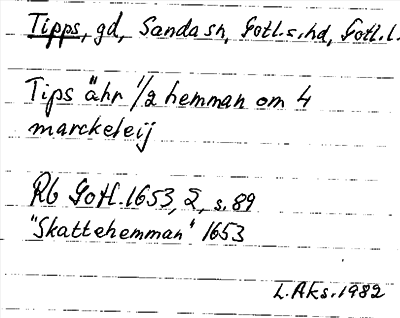 Tipps, gd, Sanda sn, Gotl.s.hd, Gotl.l.
Tips ähr 1/2 hemman om 4
marckeleij
Rb Gotl. 1653, 2, s. 89
"Skattehemman" 1653
L.Aks. 1982